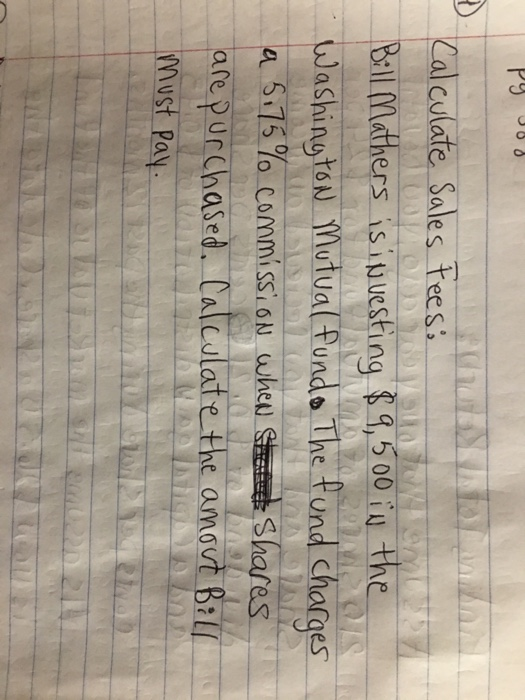 pg
Calculate Sales Fees:
Bill Mathers is investing $9,500 in the
Washington Mutual Fund. The fund charges
a 5.75% commission when shares
are purchased. Calculate the amout Bill
must pay.